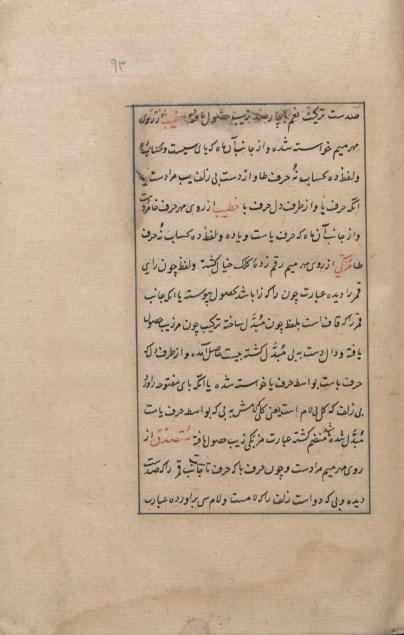 ۹۳
صدست ترکیب نغم زیب حصول یافته از روی
مهر میم خواسته شده و از جانب آن ماه که یای سیست و بحساب
و لفظ ده بحساب نُه حرف طا و از دست بی زلف یب مرادست یا
انکه حرف یا و از طرف دل حرف با خطیب از روی مهر حرف خا مرادست
و از جانب آن ماه که حرف یاست و یا ده و لفظ ده بحساب نُه حرف
طا مزکی از روی مهر میم رقم زدهٔ کلک خیال کشته و لفظ چون رای
قمر را دیده عبارت چون را که زا باشد بحصول پیوسته یا انکه جانب
قمر را که قاف است بلفظ چون مُبدَّل ساخته ترکیب چون مر زیب حصول
یافته و دال دست به بی مبدَّل کشته بیست حاصل آمده و از طرف دل که
حرف باست بواسطه حرف یا خواسته شده یا انکه بای مفتوحه
بی زلف که کل بی لام است یعنی کاف بی که بواسطه حرف یاست
مُبدَّل شده منضم کشته عبارت مزکی زیب حصول یافته مُتصدّق از
روی مهر میم مرادست و چون حرف با که حرف تا جانب قمر را که صدست
دیده و بی که دو است زلف را که لامست و لام سی برآورده عبارت